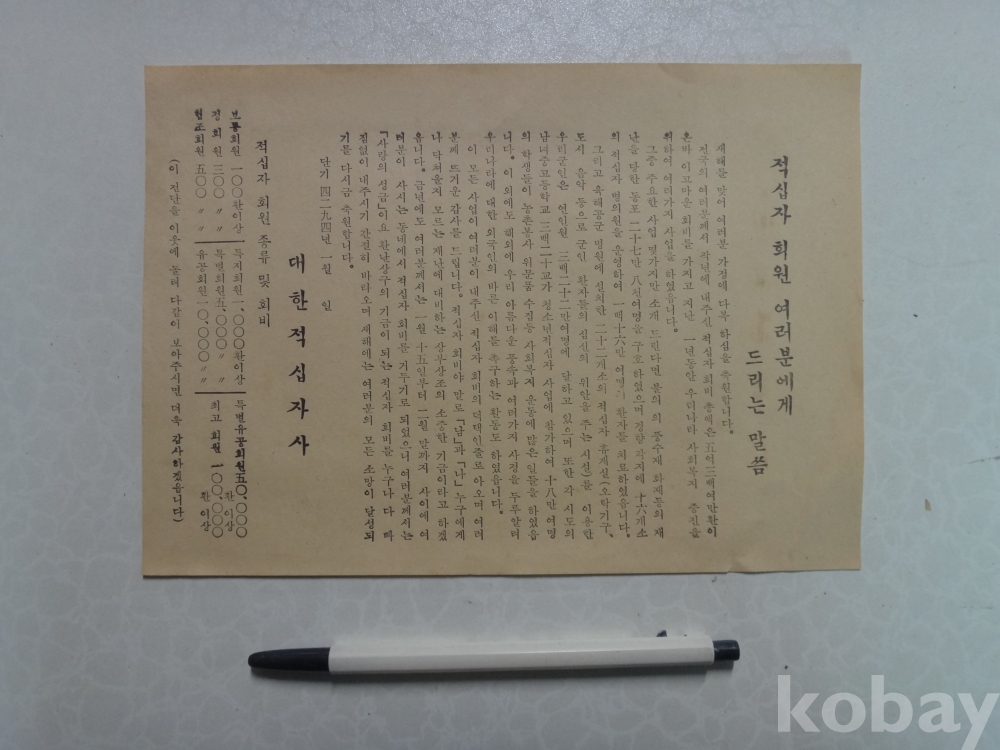 적십자 회원 여러분에게
드리는 말씀
새해를 맞어 여러분 가정에 다복 하심을 축원합니다.
전국의 여러분께서 작년에 내주신 적십자 회비 총액은 五억三백여만환이
온바 이고마운 회비를 가지고 지난 一년동안 우리나라 사회복지 증진을
위하여 여러가지 사업을 하였읍니다.
그중 주요한 사업 몇가지만 소개 드린다면 불의 의 풍수재 화재등의 재
난을 당한 동포 二十七만 八천여명을 구호하였으며 경향 각지에 十六개소
의 적십자 병의원을 운영하여 一백十六만 여명의 환자를 치료하였읍니다.
그리고 육해공군 병원에 설치한 二十二개소의 적십자 휴게실(오락기구、
도서 음악 등으로 군인 환자들의 심신의 위안을 주는 시설)를 이용한
우리군인은 연인원 三백二十二만여명에 달하고 있으며 또한 각 시도의
남녀중고등학교 三백二十교가 청소년적십자 사업에 참가하여 十八만여명
의 학생들이 농촌봉사 위문품 수집등 사회복지 운동에 많은일들을 하였읍
니다。이 외에도 해외에 우리 아름다운 풍속과 여러가지 사정을 두루알려
우리나라에 대한 외국인의 바른 이해를 촉구하는 활동도 하였읍니다。
이 모든 사업이 여러분이 내주신 적십자 회비의 덕택인줄로 아오며 여러
분께 뜨거운 감사를 드립니다。적십자 회비야 말로「남」과「나」누구에게
나 닥쳐올지 모르는 재난에 대비하는 상부상조의 소중한 기금이라고 하겠
읍니다。금년에도 여러분께서는 一월 十五일부터 二월 말까지 사이에 여
러분이 사시는 동네에서 적십자 회비를 거두기로 되였으니 여러분께서는
「사랑의 성금」이요 환난상구의 기금이 되는 적십자 회비를 누구나 다 빠
짐없이 내주시기 간절히 바라오며 새해에는 여러분의 모든 소망이 달성되
기를 다시금 축원합니다。
단기 四二九四년 一월 일
대한적십자사
적십자 회원 종류 및 회비
보통회원 一〇〇환이상 특지회원 一、〇〇〇환이상 특별유공회원五〇、〇〇〇환 이상
정 회 원 三〇〇 〃 특별회원五、〇〇〇 〃 최고 회원 一〇〇、〇〇〇환 이상
협조회원 五〇〇 〃 유공회원一〇、〇〇〇 〃
(이 전단을 이웃에 돌려 다같이 보아주시면 더욱 감사하겠읍니다)
kobay